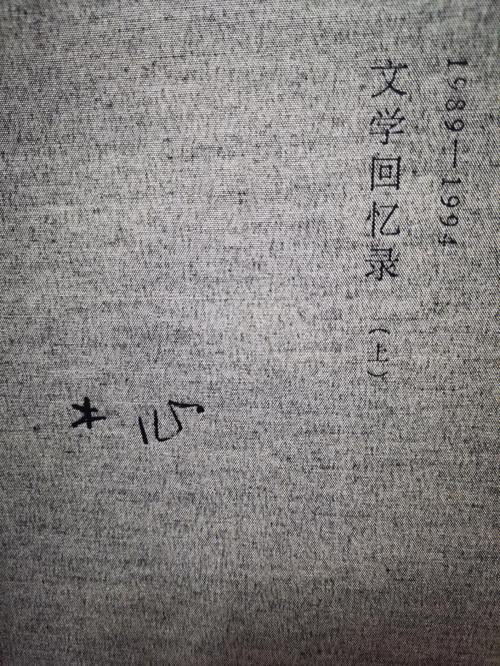 1989—1994
文学回忆录（上）
木心